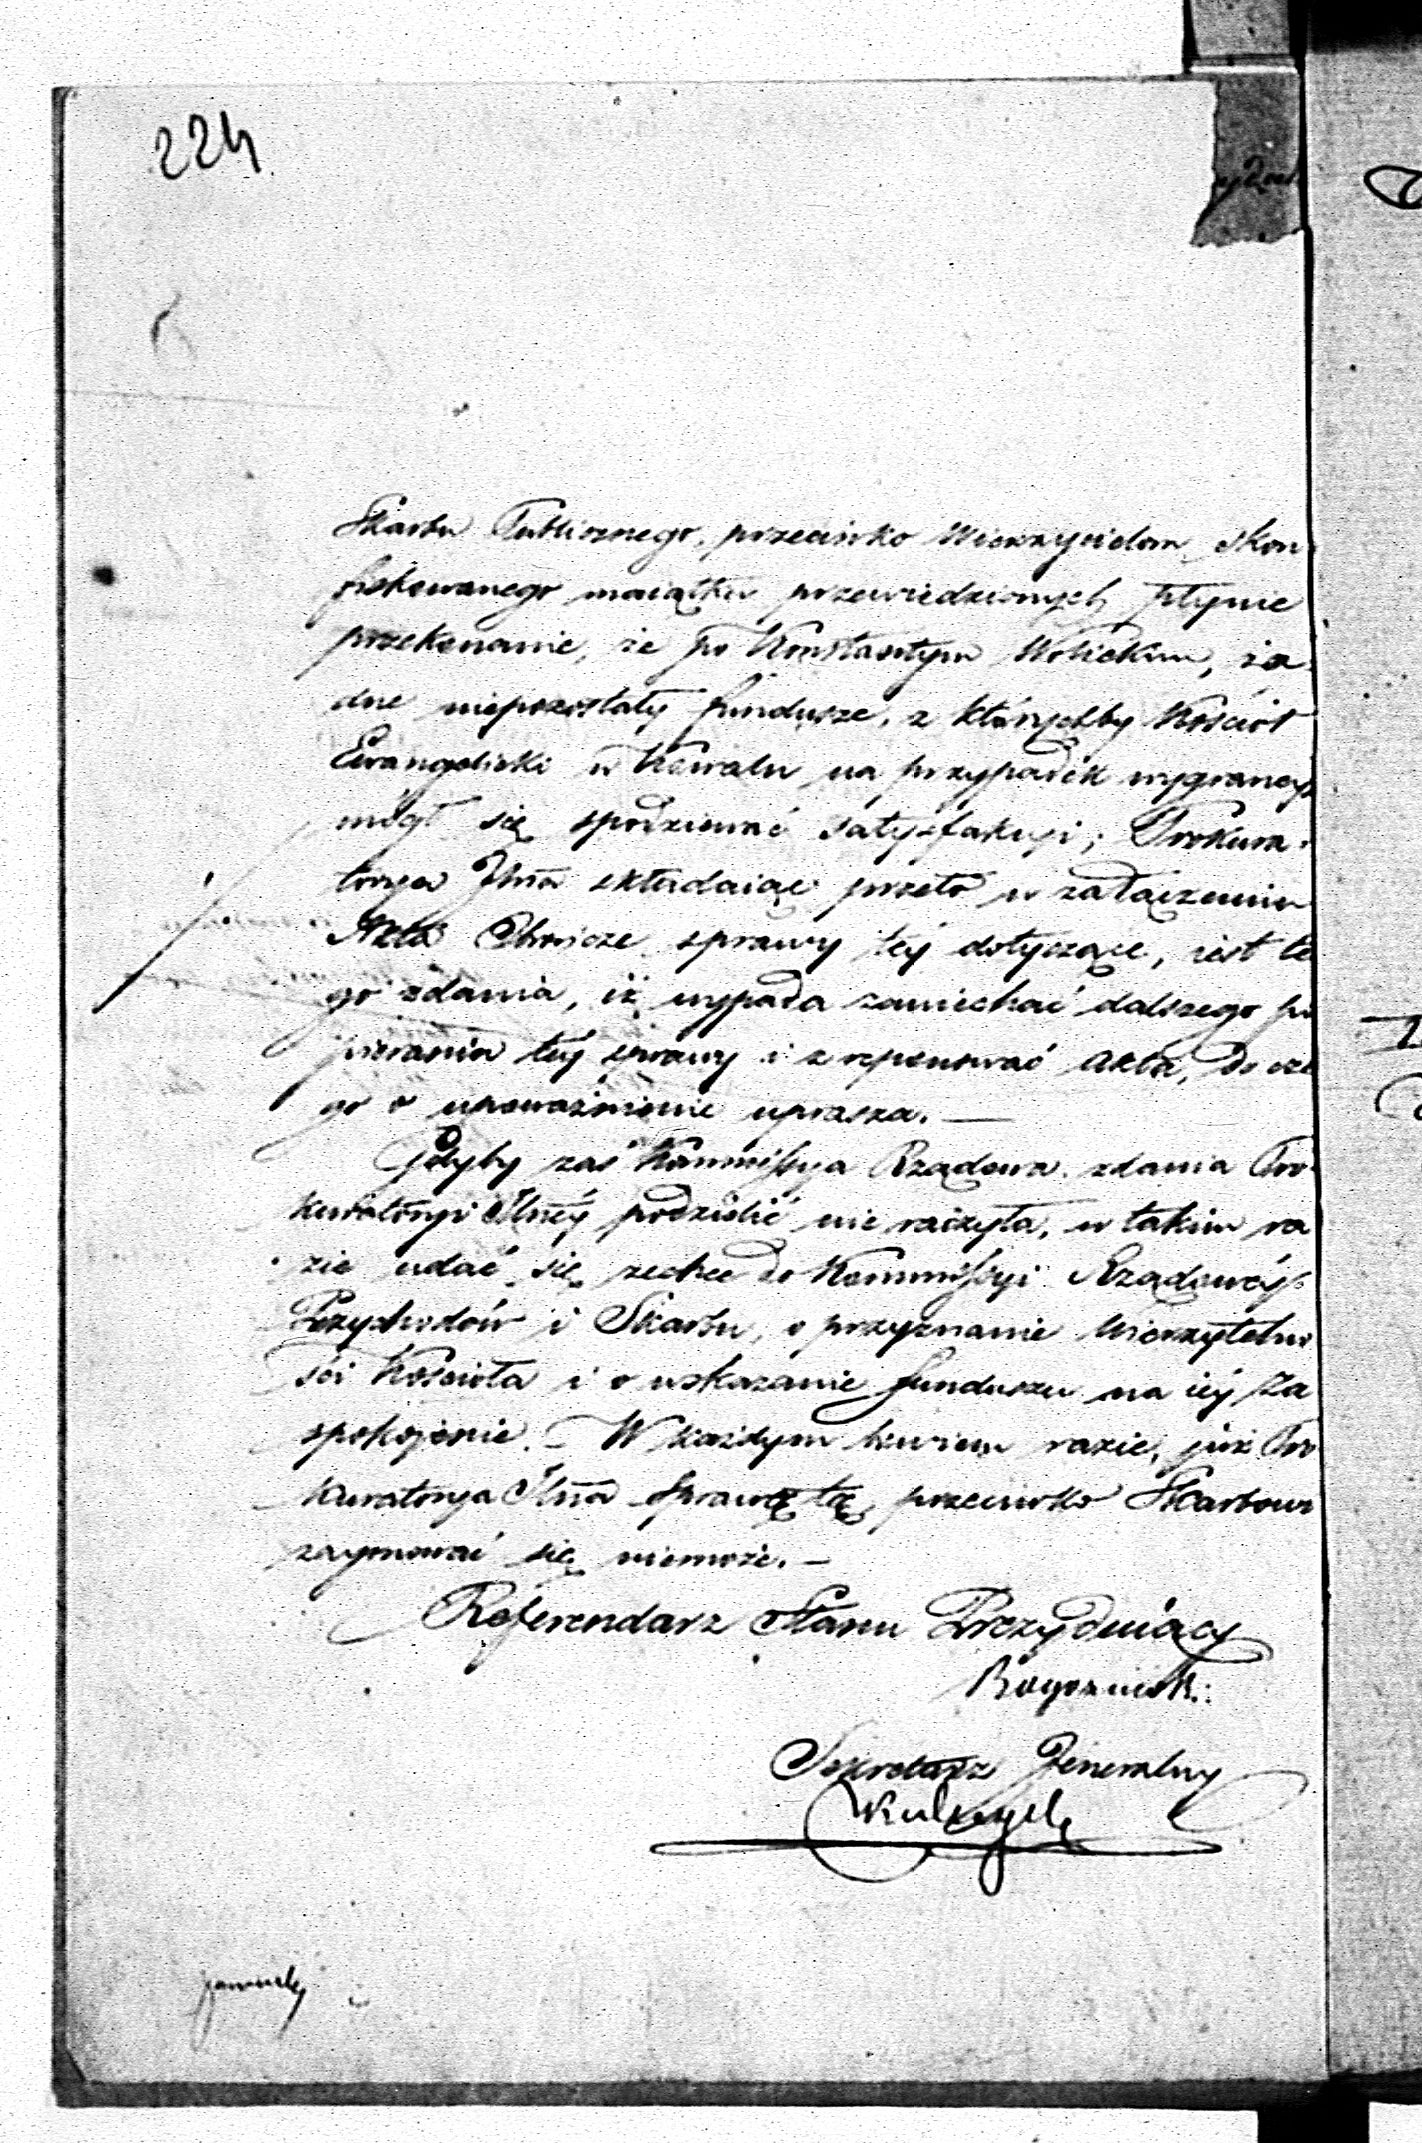 224
Skarbu Publicznego, przeciwko Wierzycielom skon
fiskowanego maiątku przewiedzionych płynie
przekonanie, że po Konstantym Wolickim, ża
dne niepozostały fundusze, z którychby Kościół
Ewangelicki w Kowalu na przypadek wygraney
mógł się spodziewać satysfakcyi; Prokura
torya Jlna składaiąc przeto w załączeniu
Akta Swoicze sprawy tey dotyczące, iest te
go zdania, iż wypada zaniechać dalszego po
pierania téy sprawy i zreponować akta, do cze
go o upoważnienie uprasza. —
Gdyby zaś Kommissya Rządowa zdania Pro
kuratoryi Jlnéy podzielić nie raczyła, w takim ra
zie udać się zechce do Kommissyi Rządowéy
Przychodów i Skarbu, o przyznanie Wierzytelno
ści Kościoła i o wskazanie funduszu na iéy za
spokojenie. — W każdym bowiem razie, już Pro
kuratorya Jlna sprawę tę, przeciwko Skarbowi
zaymować się niemoże. —
Referendarz Stanu Prezyduiący
Sekretarz Jeneralny